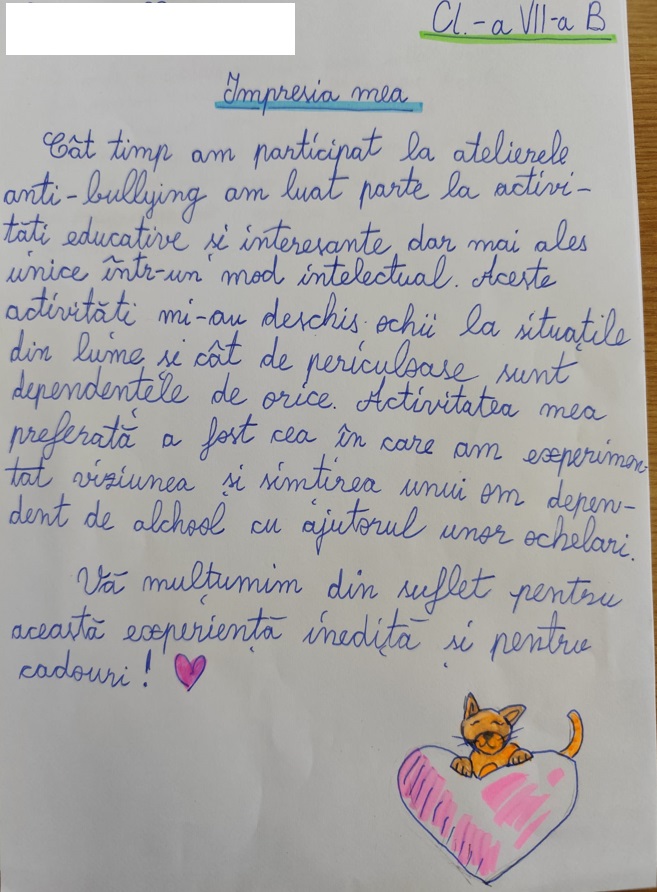 Cl.-a VII-a B
Impresia mea
Cât timp am participat la atelierele
anti-bullying am luat parte la activi-
tăti educative și interesante dar mai ales
unice într-un mod intelectual. Aceste
activităti mi-au deschis ochii la situațile
din lume și cât de periculoase sunt
dependențele de orice. Activitatea mea
preferată a fost cea în care am experimen-
tat viziunea și simtirea unui om depen-
dent de alchool cu ajutorul unor ochelari.
Vă mulțumim din suflet pentru
această experiență inedită și pentru
cadouri!